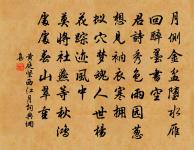 月側金盆墮水雁
回醉墨書空
君詩秀色雨園蔥
想見衲衣寒擁
蟻穴夢魂人世楊
花踪迹風中
莫將社燕等秋鴻
處處春山翠重
黃庭堅西江月詞典調
集